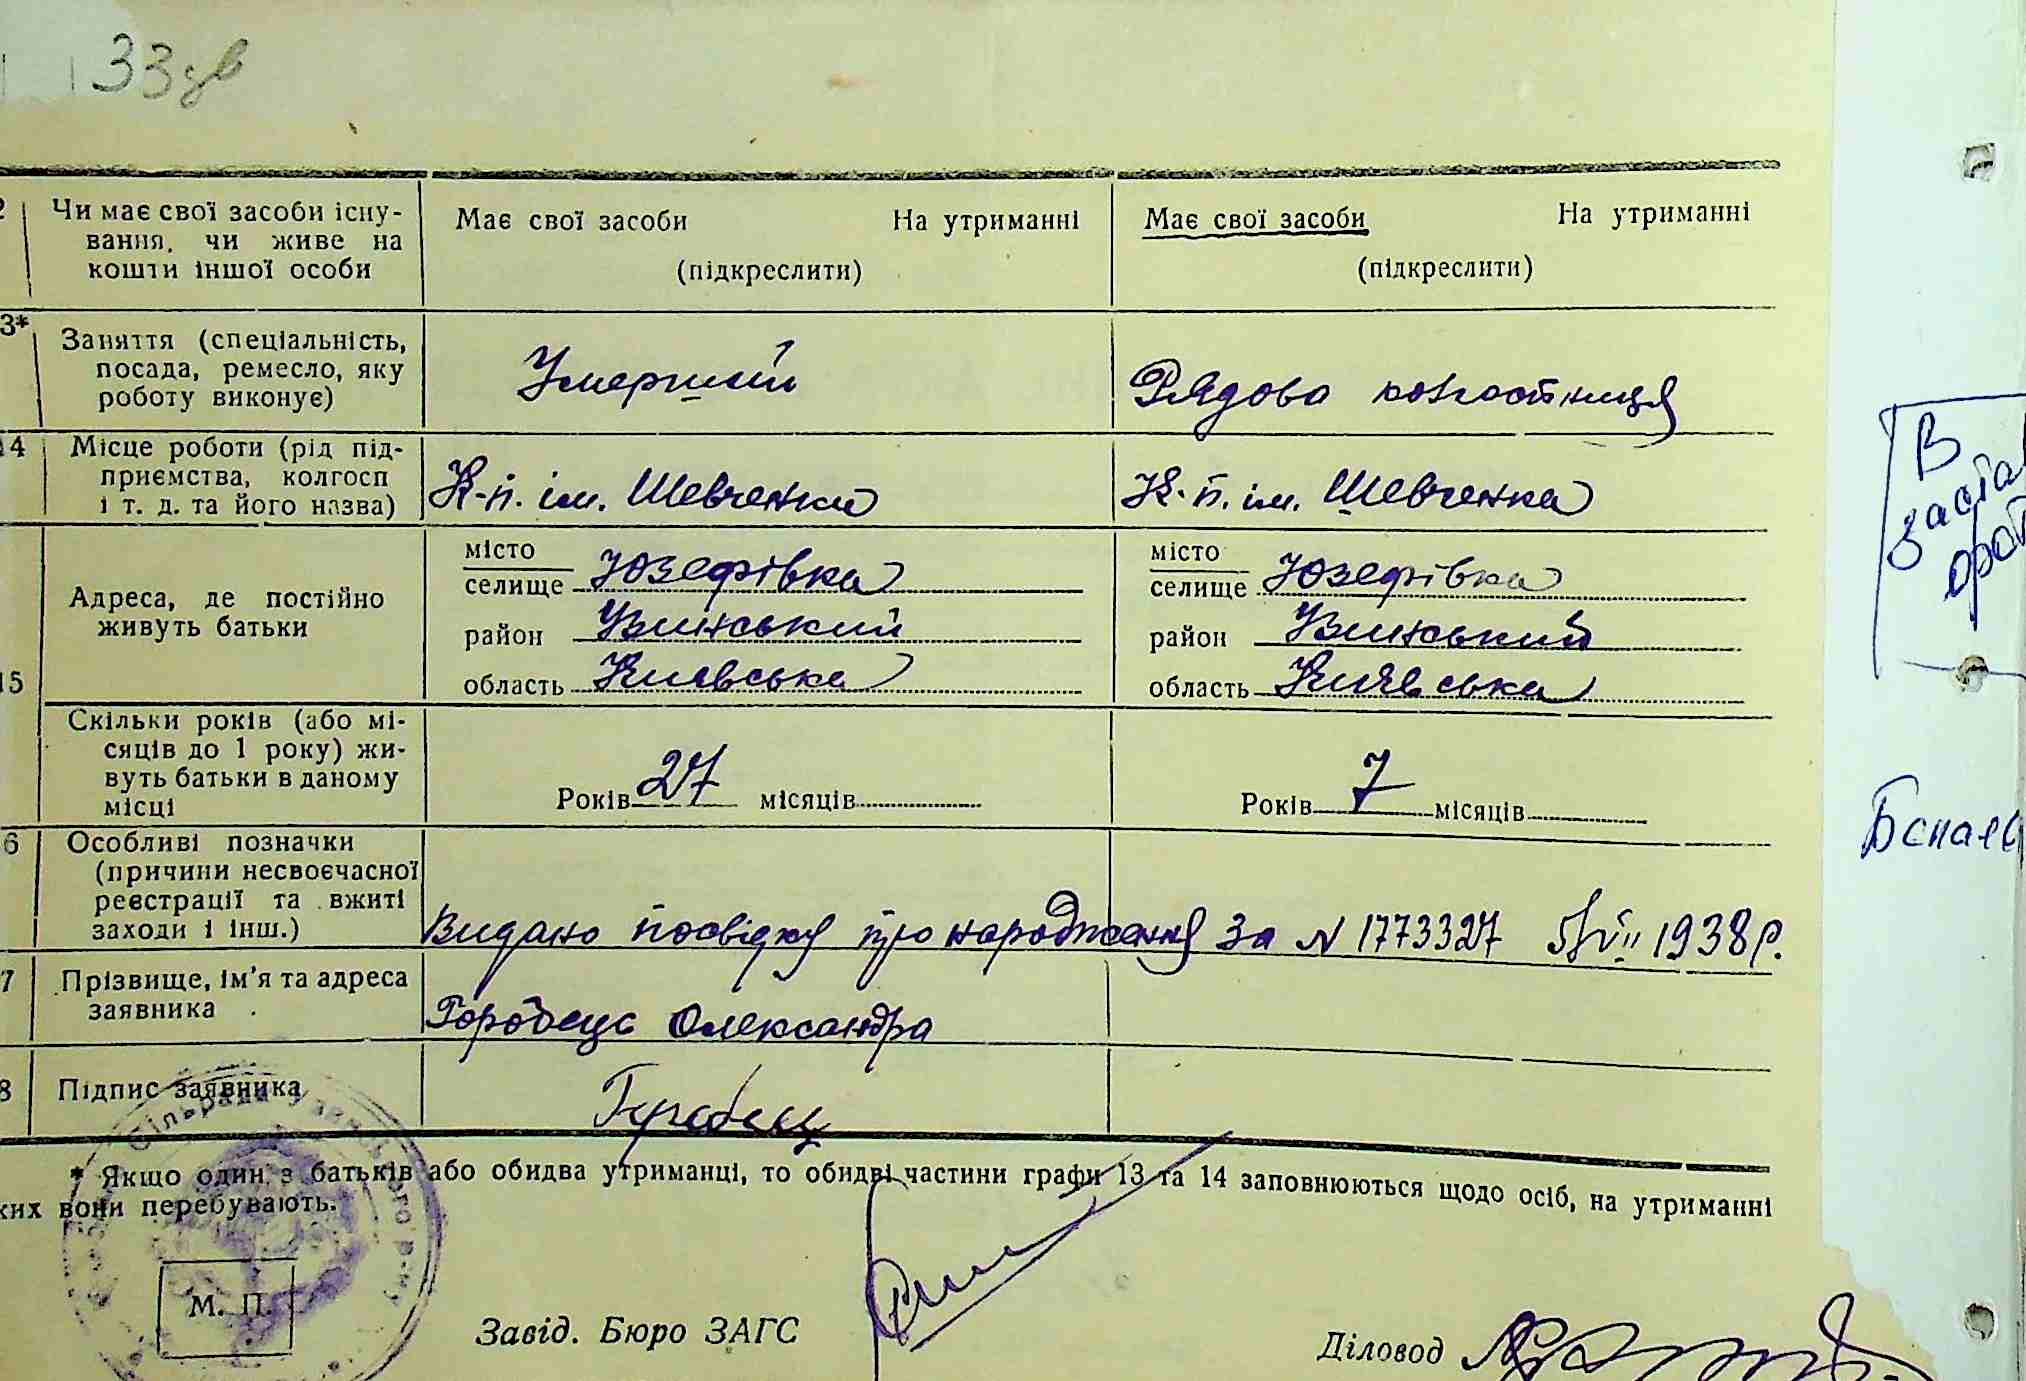 33зв
2 Чи має свої засоби існу-
вання, чи живе на
кошти іншої особи
Має свої засоби На утриманні
(підкреслити)
Має свої засоби На утриманні
(підкреслити)
3* Заняття (спеціальність,
посада, ремесло, яку
роботу виконує)
Умерший
Рядова колгостниця
14 Місце роботи (рід під-
приємства, колгосп
і т. д. та його назва)
К-п. ім. Шевченка
К-п. ім. Шевченка
15 Адреса, де постійно
живуть батьки
місто
селище Юзефівка
район Узинський
область Киевська
місто
селище Юзефівка
район Узинський
область Киівська
Скільки років (або мі-
сяців до 1 року) жи-
вуть батьки в даному
місці
Років 27 місяців
Років 7 місяців
6 Особливі позначки
(причини несвоєчасної
реєстрації та вжиті
заходи і інш.)
Видано посвідку про народження за N 1773327 5/VII 1938 р.
7 Прізвище, ім'я та адреса
заявника
Горобець Олександра
8 Підпис заявника
Горобец
* Якщо один з батьків або обидва утриманці, то обидві частини графи 13 та 14 заповнюються щодо осіб, на утриманні
ких вони перебувають.
М. П.
Завід. Бюро ЗАГС
Діловод
В